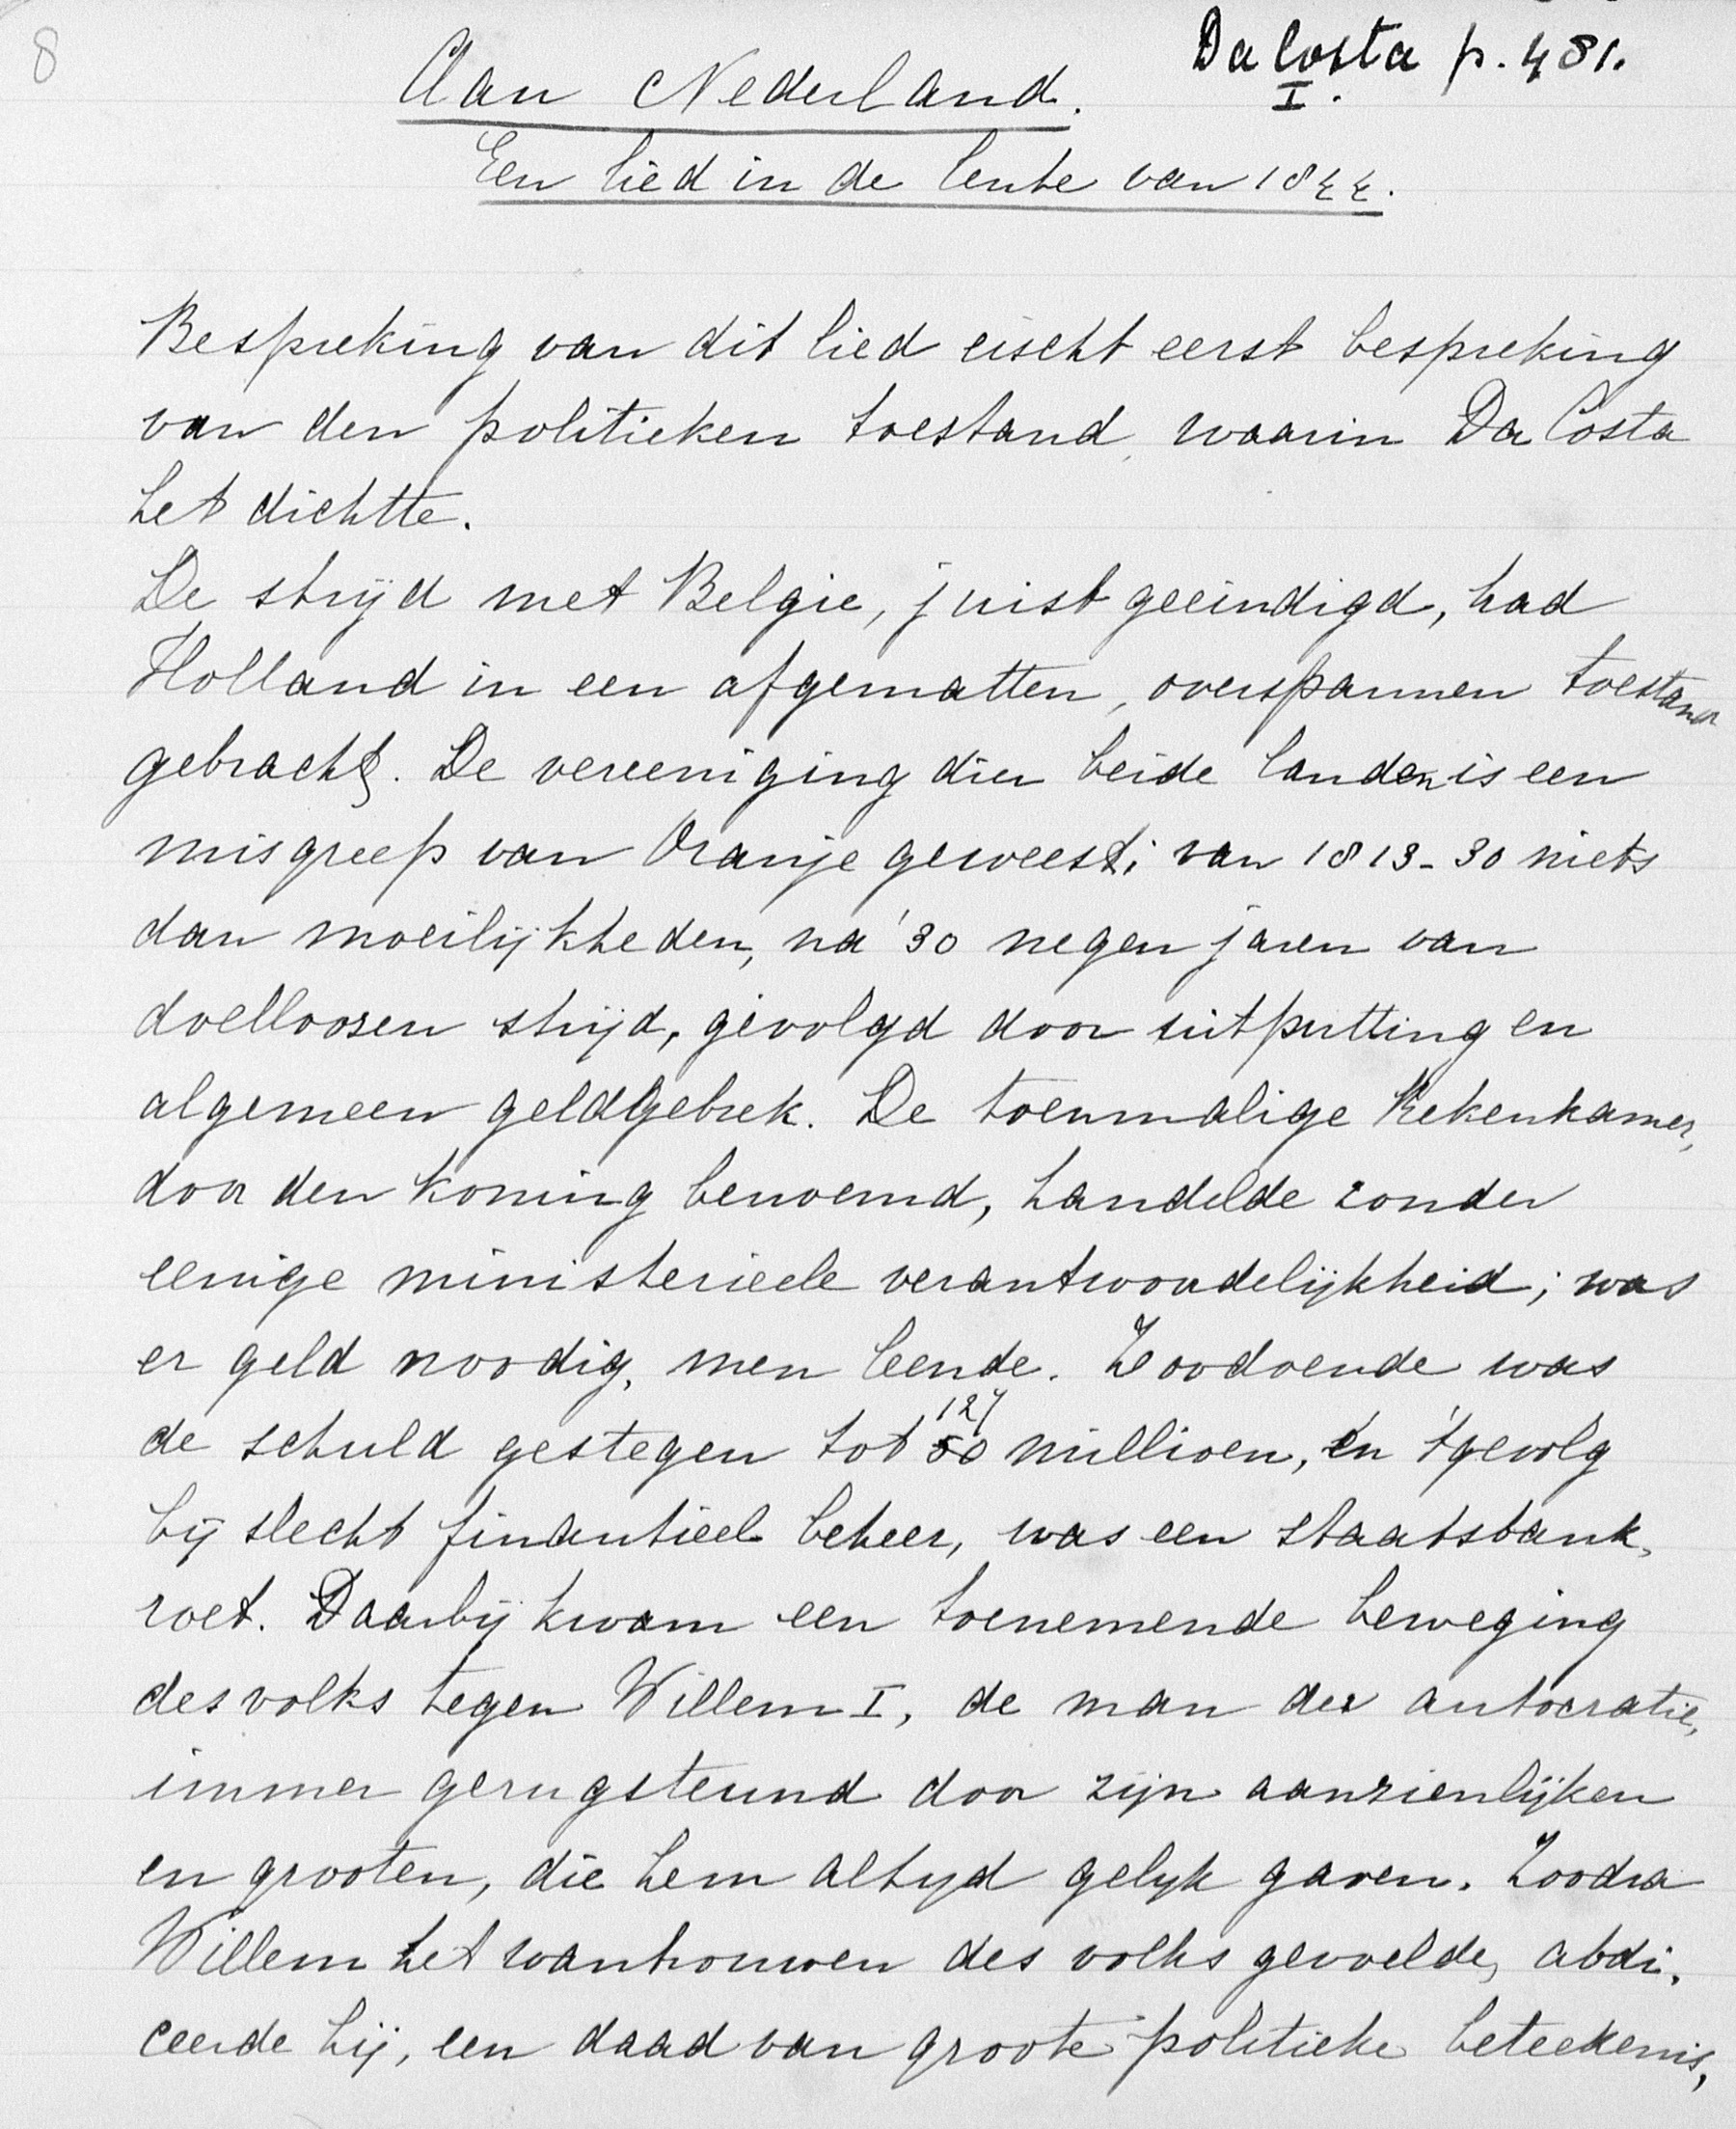 8
Da Costa p. 481.
I.
Aan Nederland.
Een lied in de lente van 1844.
Bespreking van dit lied eischt eerst bespreking
van den politieken toestand, waarin Da Costa
het dichtte.
De strijd met Belgie, juist geeindigd, had
Holland in een afgematten, overspannen toestand
gebracht. De vereeniging dier beide landen is een
misgreep van Oranje geweest; van 1813-30 niets
dan moeilijkheden, na '30 negen jaren van
doelloozen strijd, gevolgd door uitputting en
algemeen geldgebrek. De toenmalige Rekenkamer,
door den Koning benoemd, handelde zonder
eenige ministerieele verantwoordelijkheid; was
er geld noodig, men leende. Zoodoende was
127
de schuld gestegen tot 50 millioen, en 't gevolg
bij slecht finantieel beheer, was een staatsbank-
roet. Daarbij kwam een toenemende beweging
des volks tegen Willem I, de man der autocratie,
immer gerugsteund door zijn aanzienlijken
en grooten, die hem altyd gelyk gaven. Zoodra
Willem het wantrouwen des volks gevoelde, abdi-
ceerde hij, een daad van groote politieke beteekenis,